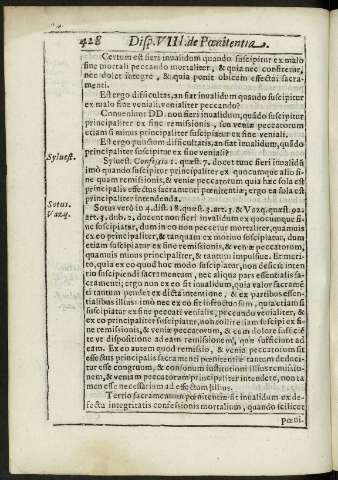 428 Disp. VIII. de Pœnitentia.
Certum est fieri inualidum quando suscipitur ex malo
fine mortali peccando mortaliter, & quia nec confitetur,
nec dolet integrè, & quia ponit obicem effectui sacra-
menti.
Est ergo difficultas, an fiat inualidum quãdo suscipitur
ex malo fine veniali, venialiter peccando?
Conueniunt DD. non fieri inualidum, quãdo suscipitur
principaliter ex fine remissionis, seu veniæ peccatorum
etiam si minus principaliter suscipiatur ex fine veniali.
Est ergo punctum difficultatis, an fiat inualidum, quãdo
principaliter suscipitur ex fine veniali?
Syluest.
Syluest. Confessio 1. quæst. 7. docet tunc fieri inualidũ
imò quando suscipitur principaliter ex quocumque alio fi-
ne quam remissionis, & veniæ peccatorum quia hæc sola est
principalis effectus sacramenti pœnitentiæ; ergo ea sola est
principaliter intendenda.
Sotus.
Vazq.
Sotus verò in 4. dist. 18. quæst. 3. art. 3. & Vazq. quæst. 92.
art. 3. dub. 2. docent non fieri inualidum ex quocumque fi-
ne suscipiatur, dum in eo non peccetur mortaliter, quamuis
ex eo principaliter, & tanquam ex motiuo suscipiatur, dum
etiam suscipiatur ex fine remissionis, & veniæ peccatorum,
quamuis minus principaliter, & tantum impulsiue. Et meri-
to, quia ex eo quod hoc modo suscipiatur, non deficit inten-
tio suscipiendi sacramentum, nec aliqua pars essentialis sa-
cramenti; ergo non ex eo fit inualidum, quia valor sacramẽ
ti tantum pendet ex dicta intentione, & ex partibus essen-
tialibus illius: imò nec ex eo fit infructuosum, quia etiam si
suscipiatur ex fine peccati venialis, peccando venialiter, &
ex eo principaliter suscipiatur, non tollitur etiam suscipi ex fi-
ne remissionis, & veniæ peccatorum, & cum dolore sufficiẽ
te vt dispositione ad eam remissionem, quæ sufficiunt ad
eam. Ex eo autem quod remissio, & venia peccatorum sit
effectus principalis sacramenti pœnitentiæ tantum deduci-
tur esse congruum, & consonum institutioni illius remissio-
nem, & veniam peccatorum principaliter intendere, non ta
men esse necessarium ad effectum illius.
Tertio sacramentum pœnitentiæ fit inualidum ex de-
fectu integritatis confessionis mortalium, quando scilicet
Pœni-